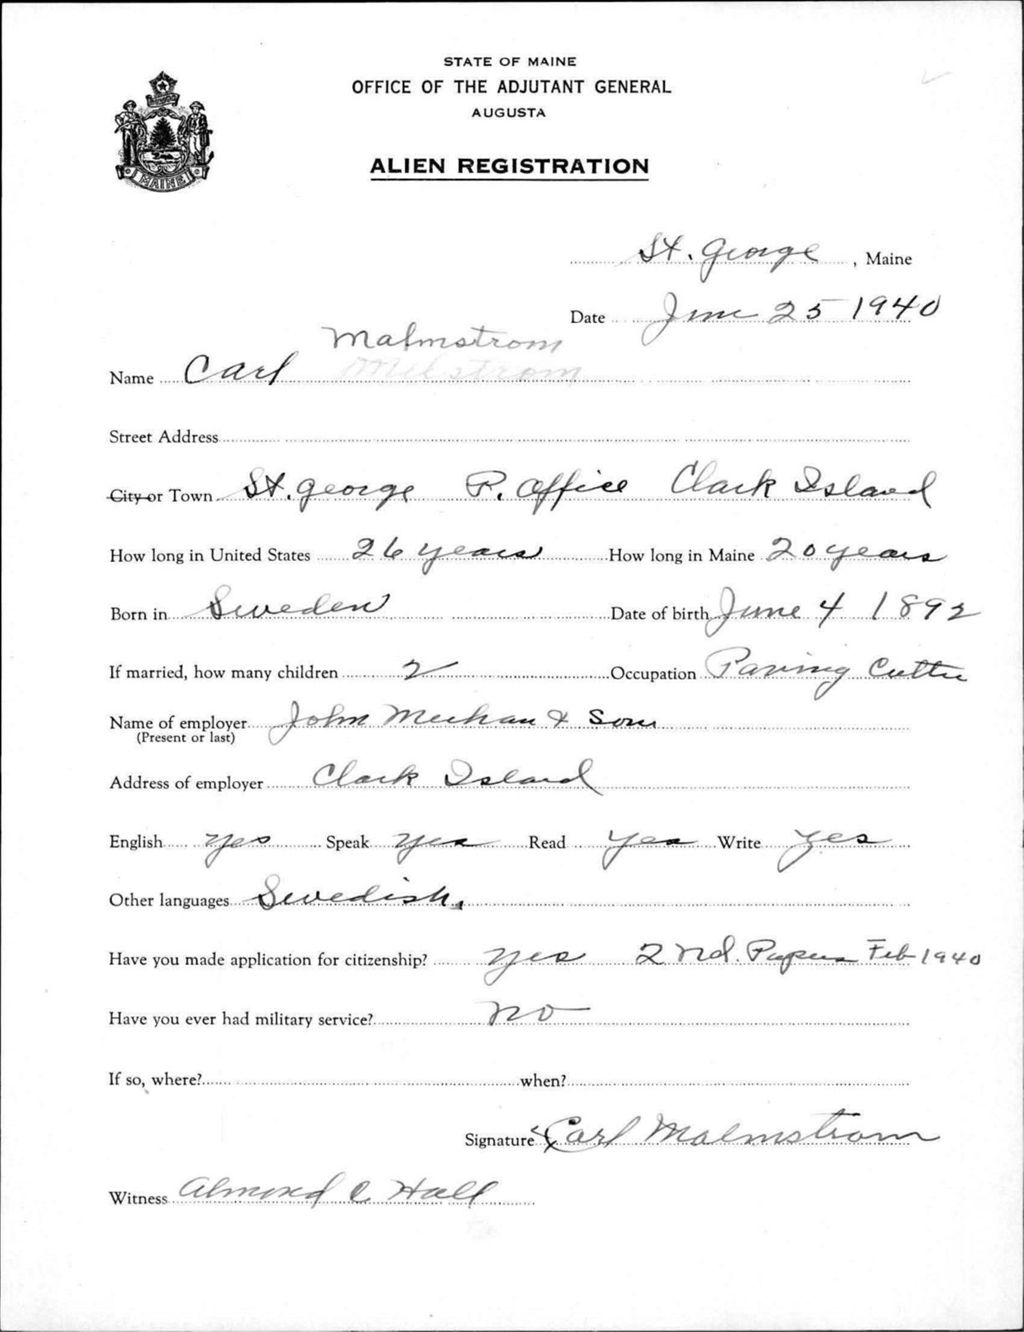 STATE OF MAINE
OFFICE OF THE ADJUTANT GENERAL
AUGUSTA
ALIEN REGISTRATION
MAINE
St. George, Maine
Date June 25 1940
Malmstrom
Name Carl Milstrom
Street Address
City or Town St. George P. Office Clark Island
How long in United States 26 years How long in Maine 20 years
Born in Sweden Date of birth June 4 1892
If married, how many children 2 Occupation Paving Cutter
Name of employer John Meehan & Son
(Present or last)
Address of employer Clark Island
English yes Speak yes Read yes Write yes
Other languages Swedish.
Have you made application for citizenship? yes 2nd. Papers Feb 1940
Have you ever had military service? no
If so, where? when?
Signature Carl Malmstrom
Witness Almond C. Hall